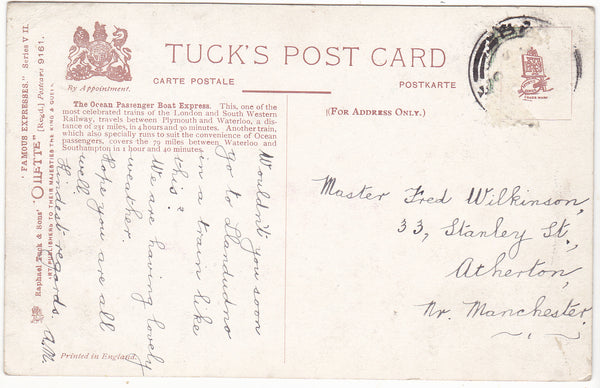 TUCK'S POST CARD
CARTE POSTALE
POSTKARTE
By Appointment.
(FOR ADDRESS ONLY.)
"FAMOUS EXPRESSES." Series VII.
Raphael Tuck & Sons' "OILETTE" [Regd.] Postcard 9161.
ART PUBLISHERS TO THEIR MAJESTIES THE KING & QUEEN.
The Ocean Passenger Boat Express. This, one of the
most celebrated trains of the London and South Western
Railway, travels between Plymouth and Waterloo, a dis-
tance of 231 miles, in 4 hours and 30 minutes. Another train,
which also specially runs to suit the convenience of Ocean
passengers, covers the 79 miles between Waterloo and
Southampton in 1 hour and 40 minutes.
Wouldn't you soon
go to Llandudno
in a train like
this?
We are having lovely
weather.
Hope you are all
well
Kindest regards. A.W.
Printed in England.
Master Fred Wilkinson,
33, Stanley St.,
Atherton,
Nr. Manchester.
TRADE MARK